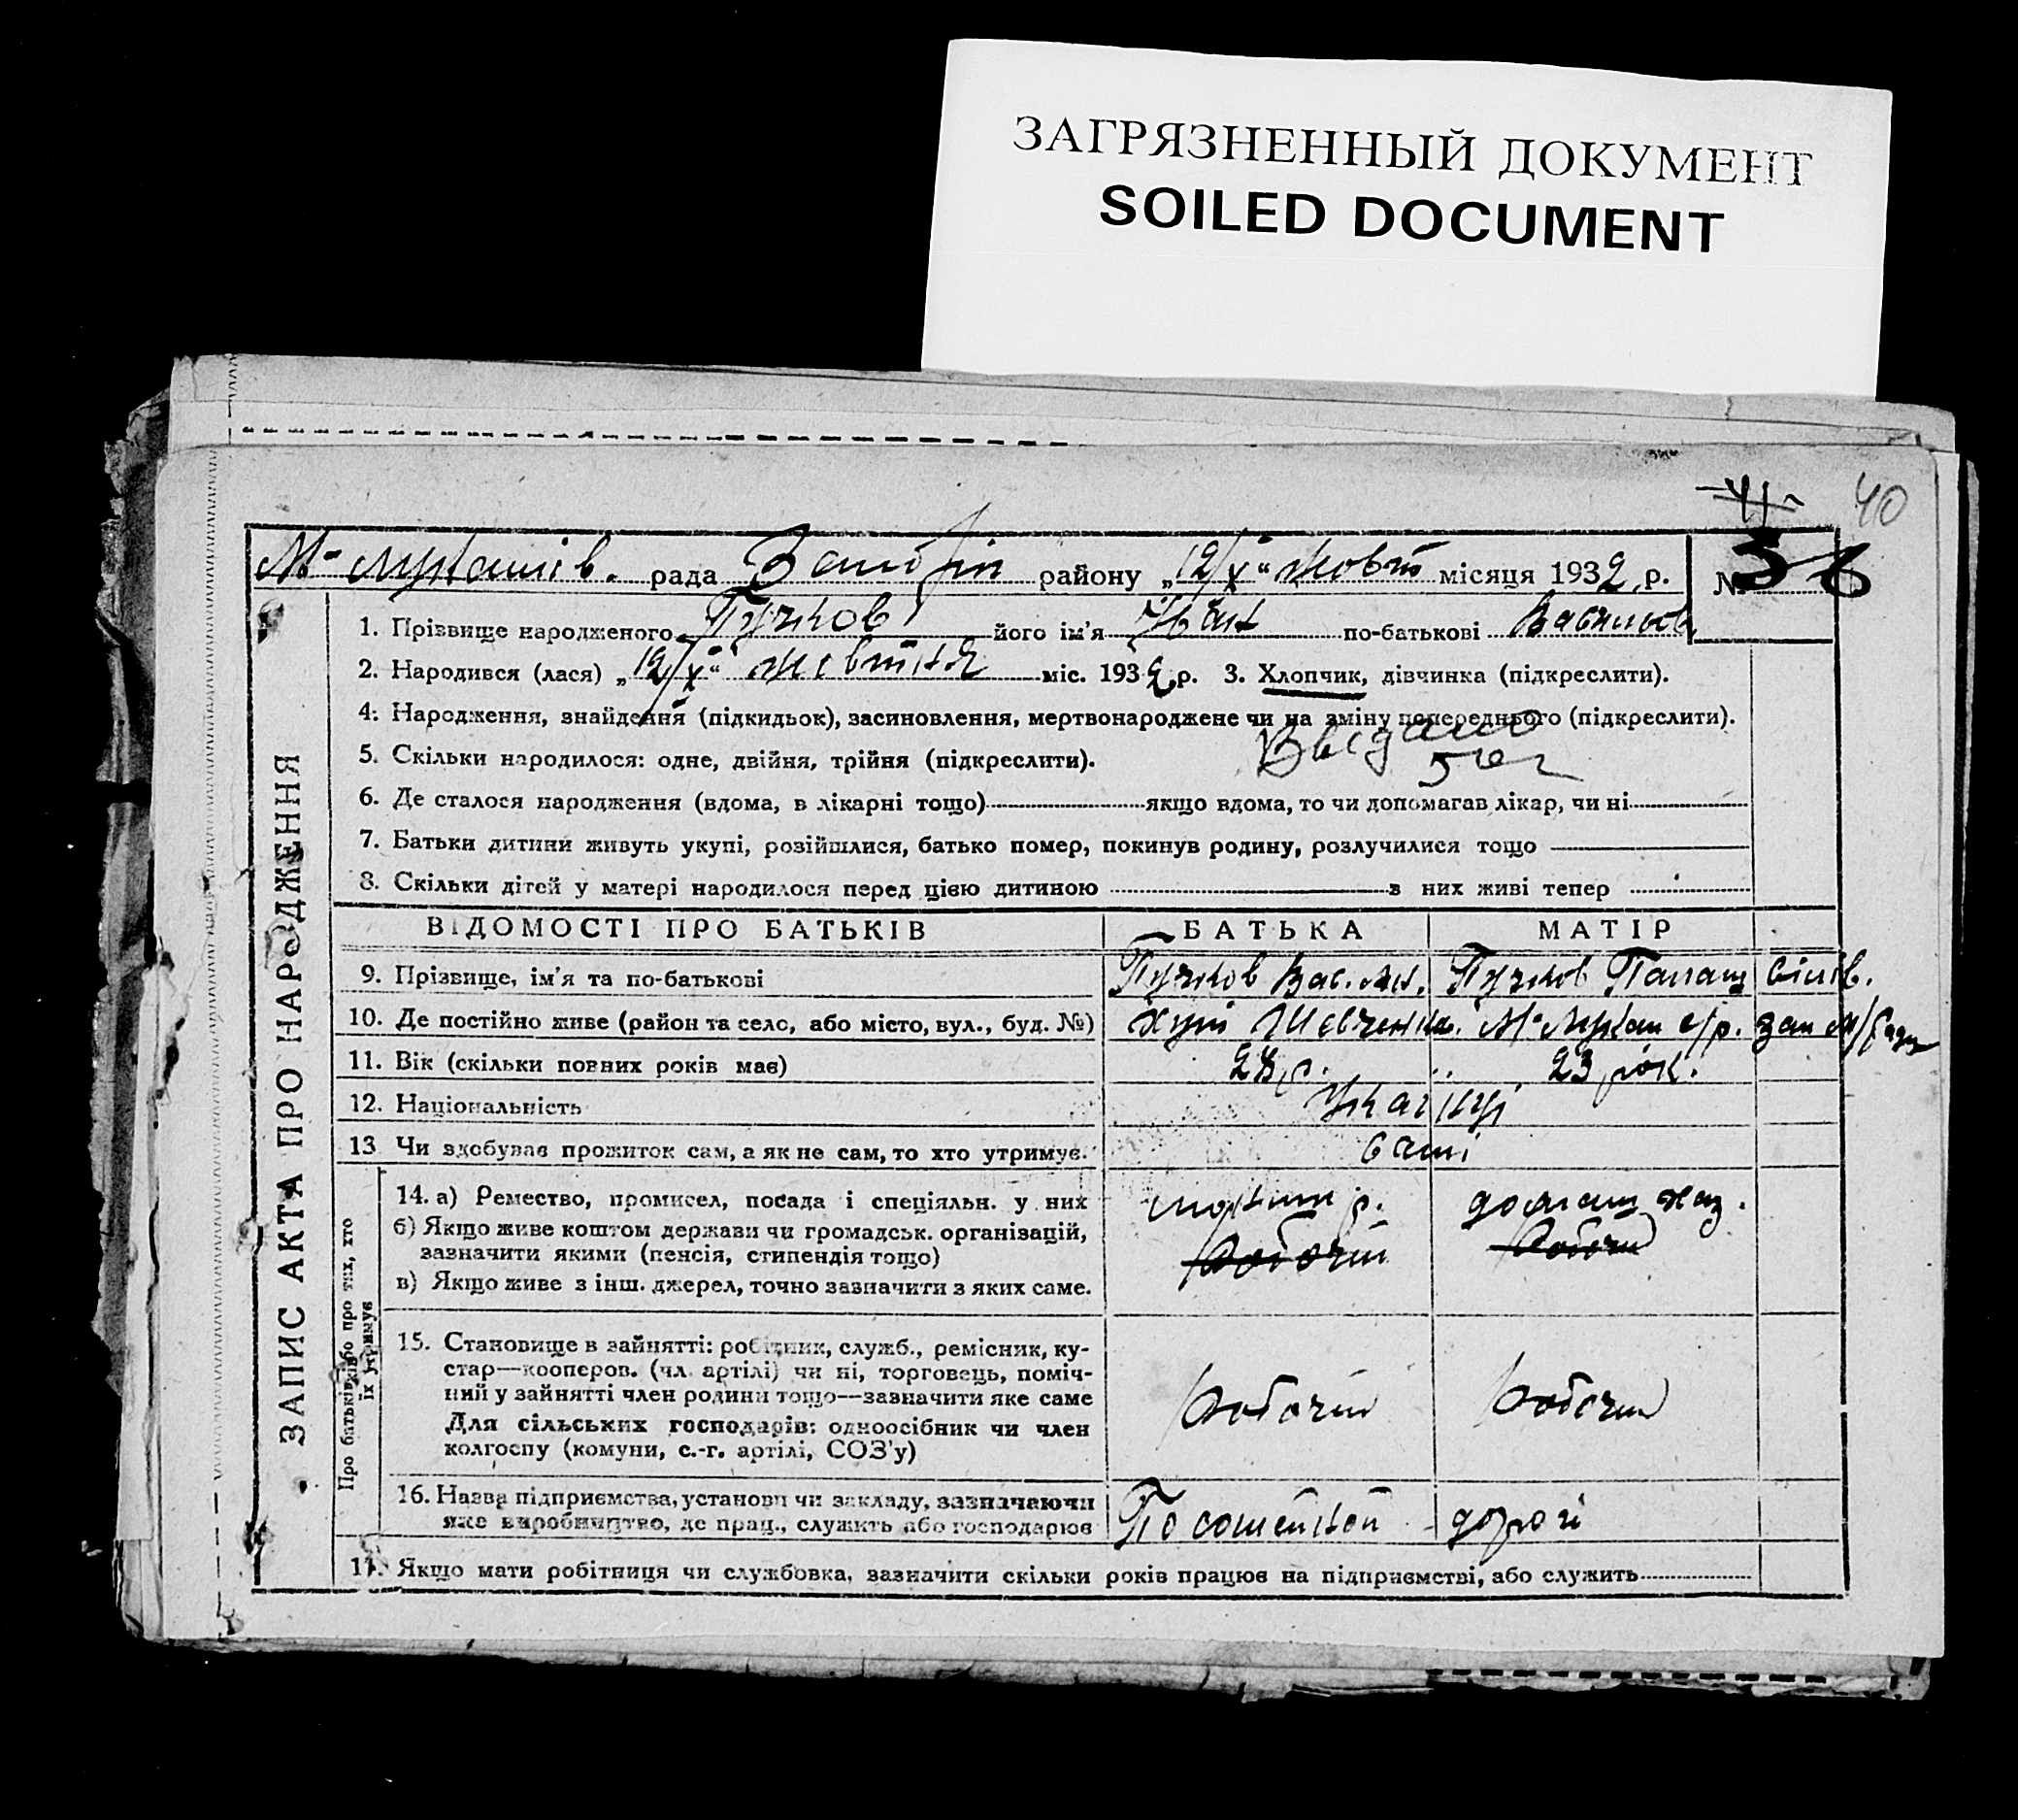 ЗАГРЯЗНЕННЫЙ ДОКУМЕНТ
SOILED DOCUMENT
41
40
рада район району „12/X“ Жовт місяця 1932 р. №
1. Прізвище народженого Пучков його ім'я Іван по-батькові Васильов
2. Народився (лася) „12/X“ жовтня міс. 1932 р. 3. Хлопчик, дівчинка (підкреслити).
4. Народження, знайдення (підкидьок), засиновлення, мертвонароджене чи на зміну попереднього (підкреслити).
5. Скільки народилося: одне, двійня, трійня (підкреслити).
6. Де сталося народження (вдома, в лікарні тощо) якщо вдома, то чи допомагав лікар, чи ні
7. Батьки дитини живуть укупі, розійшлися, батько помер, покинув родину, розлучилися тощо
8. Скільки дітей у матері народилося перед цією дитиною з них живі тепер
ЗАПИС АКТА ПРО НАРОДЖЕННЯ
ВІДОМОСТІ ПРО БАТЬКІВ БАТЬКА МАТІР
9. Прізвище, ім'я та по-батькові Пучков Вас. Пучков
10. Де постійно живе (район та село, або місто, вул., буд. №) хут Шевченка с/р.
11. Вік (скільки повних років має) 23 рок.
12. Національність
13 Чи здобуває прожиток сам, а як не сам, то хто утримує. сами
Про батьків або про тих, хто їх утримує
14. а) Ремество, промисел, посада і спеціяльн. у них
б) Якщо живе коштом держави чи громадськ. організацій, зазначити якими (пенсія, стипендія тощо) Робочий Робочий
в) Якщо живе з інш. джерел, точно зазначити з яких саме.
15. Становище в зайнятті: робітник, служб., ремісник, ку-
стар—кооперов. (чл. артілі) чи ні, торговець, поміч-
ний у зайнятті член родини тощо—зазначити яке саме Робочий Робочий
Для сільських господарів: одноосібник чи член
колгоспу (комуни, с.-г. артілі, СОЗ'у)
16. Назва підприємства, установи чи закладу, зазначаючи
яке виробництво, де прац., служить або господарює По дорогі
17. Якщо мати робітниця чи службовка, зазначити скільки років працює на підприємстві, або служить